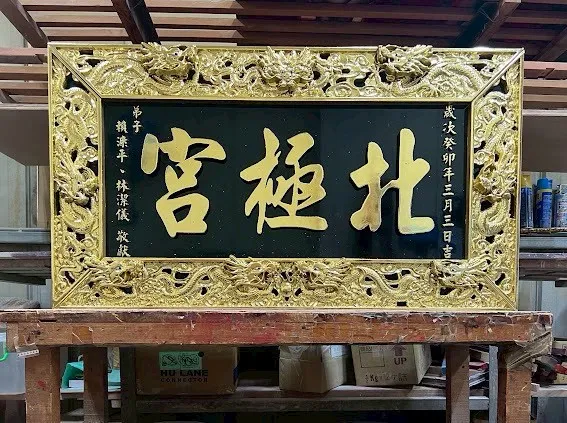 歲次癸卯年三月三日吉
北極宮
弟子
賴濼平、林潔儀 敬獻
HU LANE
CONNECTOR
UP